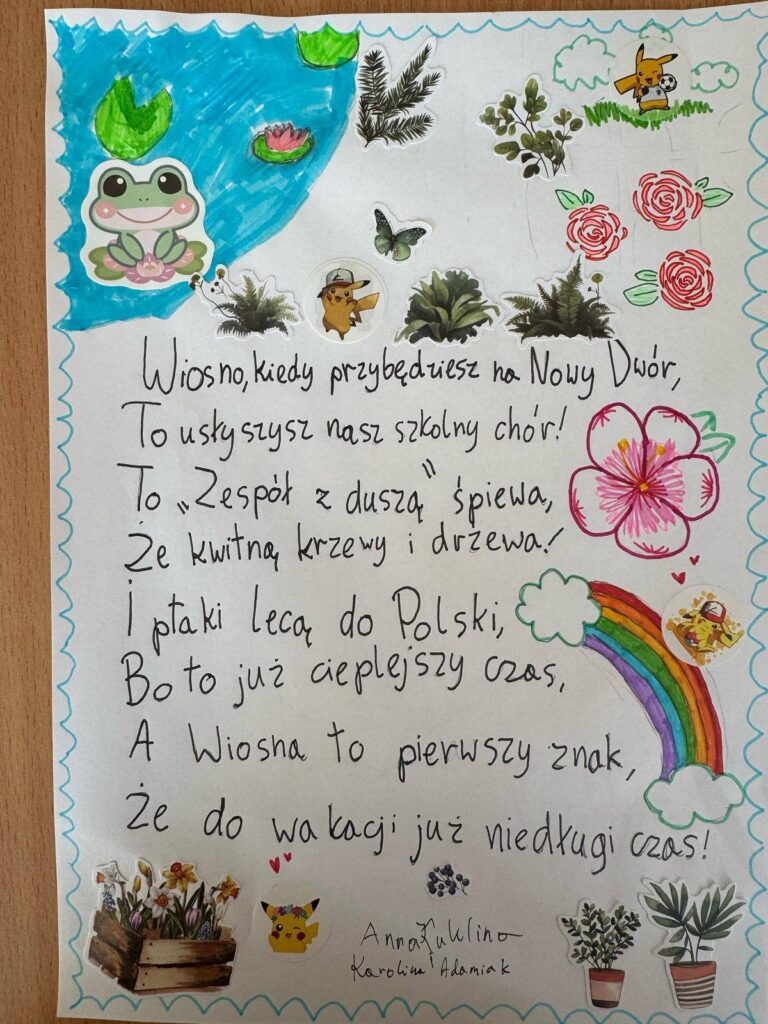 Wiosno, kiedy przybędziesz na Nowy Dwór,
To usłyszysz nasz szkolny chór!
To „Zespół z duszą” śpiewa,
Że kwitną krzewy i drzewa!
I ptaki lecą do Polski,
Bo to już cieplejszy czas,
A Wiosna to pierwszy znak,
Że do wakacji już niedługi czas!
Anna
Karolina Adamiak